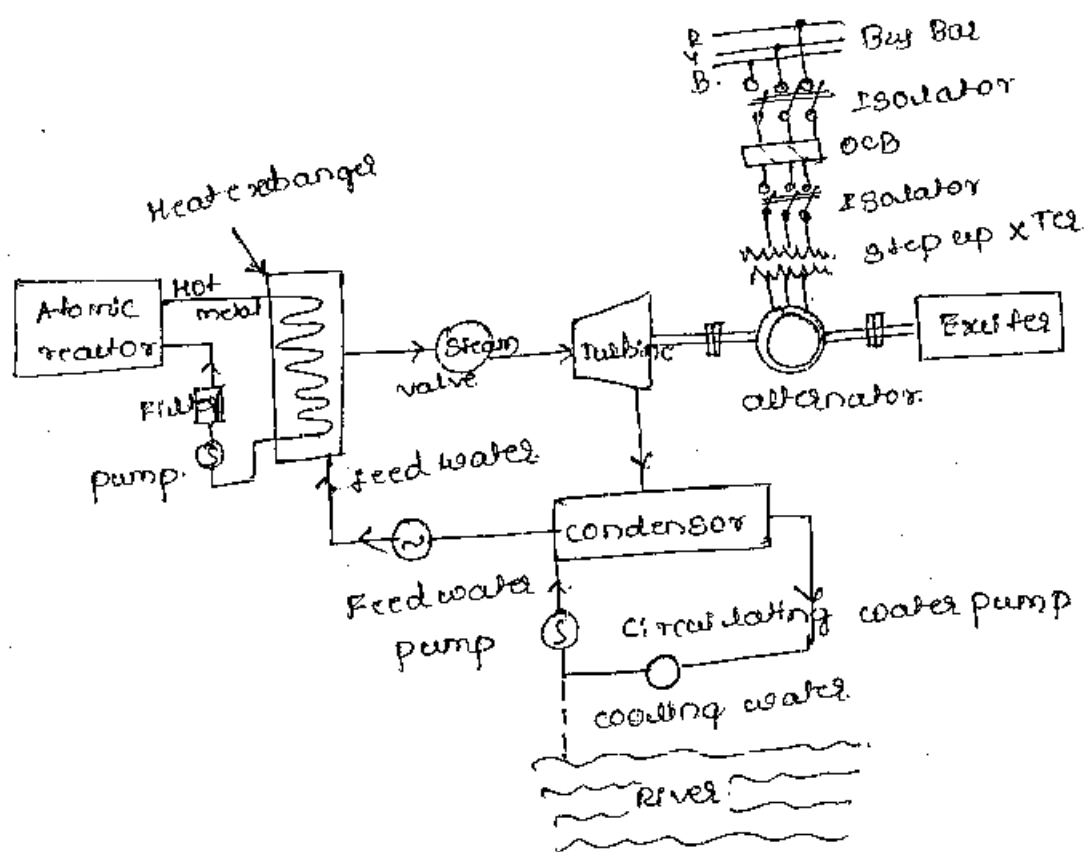 R
Y
B.
Bus Bar
Isolator
OCB
Isolator
Step up x Ter
Heat exchanger
Atomic
reactor
Hot
metal
Filter
pump.
Steam
valve
Turbine
alternator.
Exciter
feed water
Condensor
Feed water
pump
Circulating water pump
cooling water
River